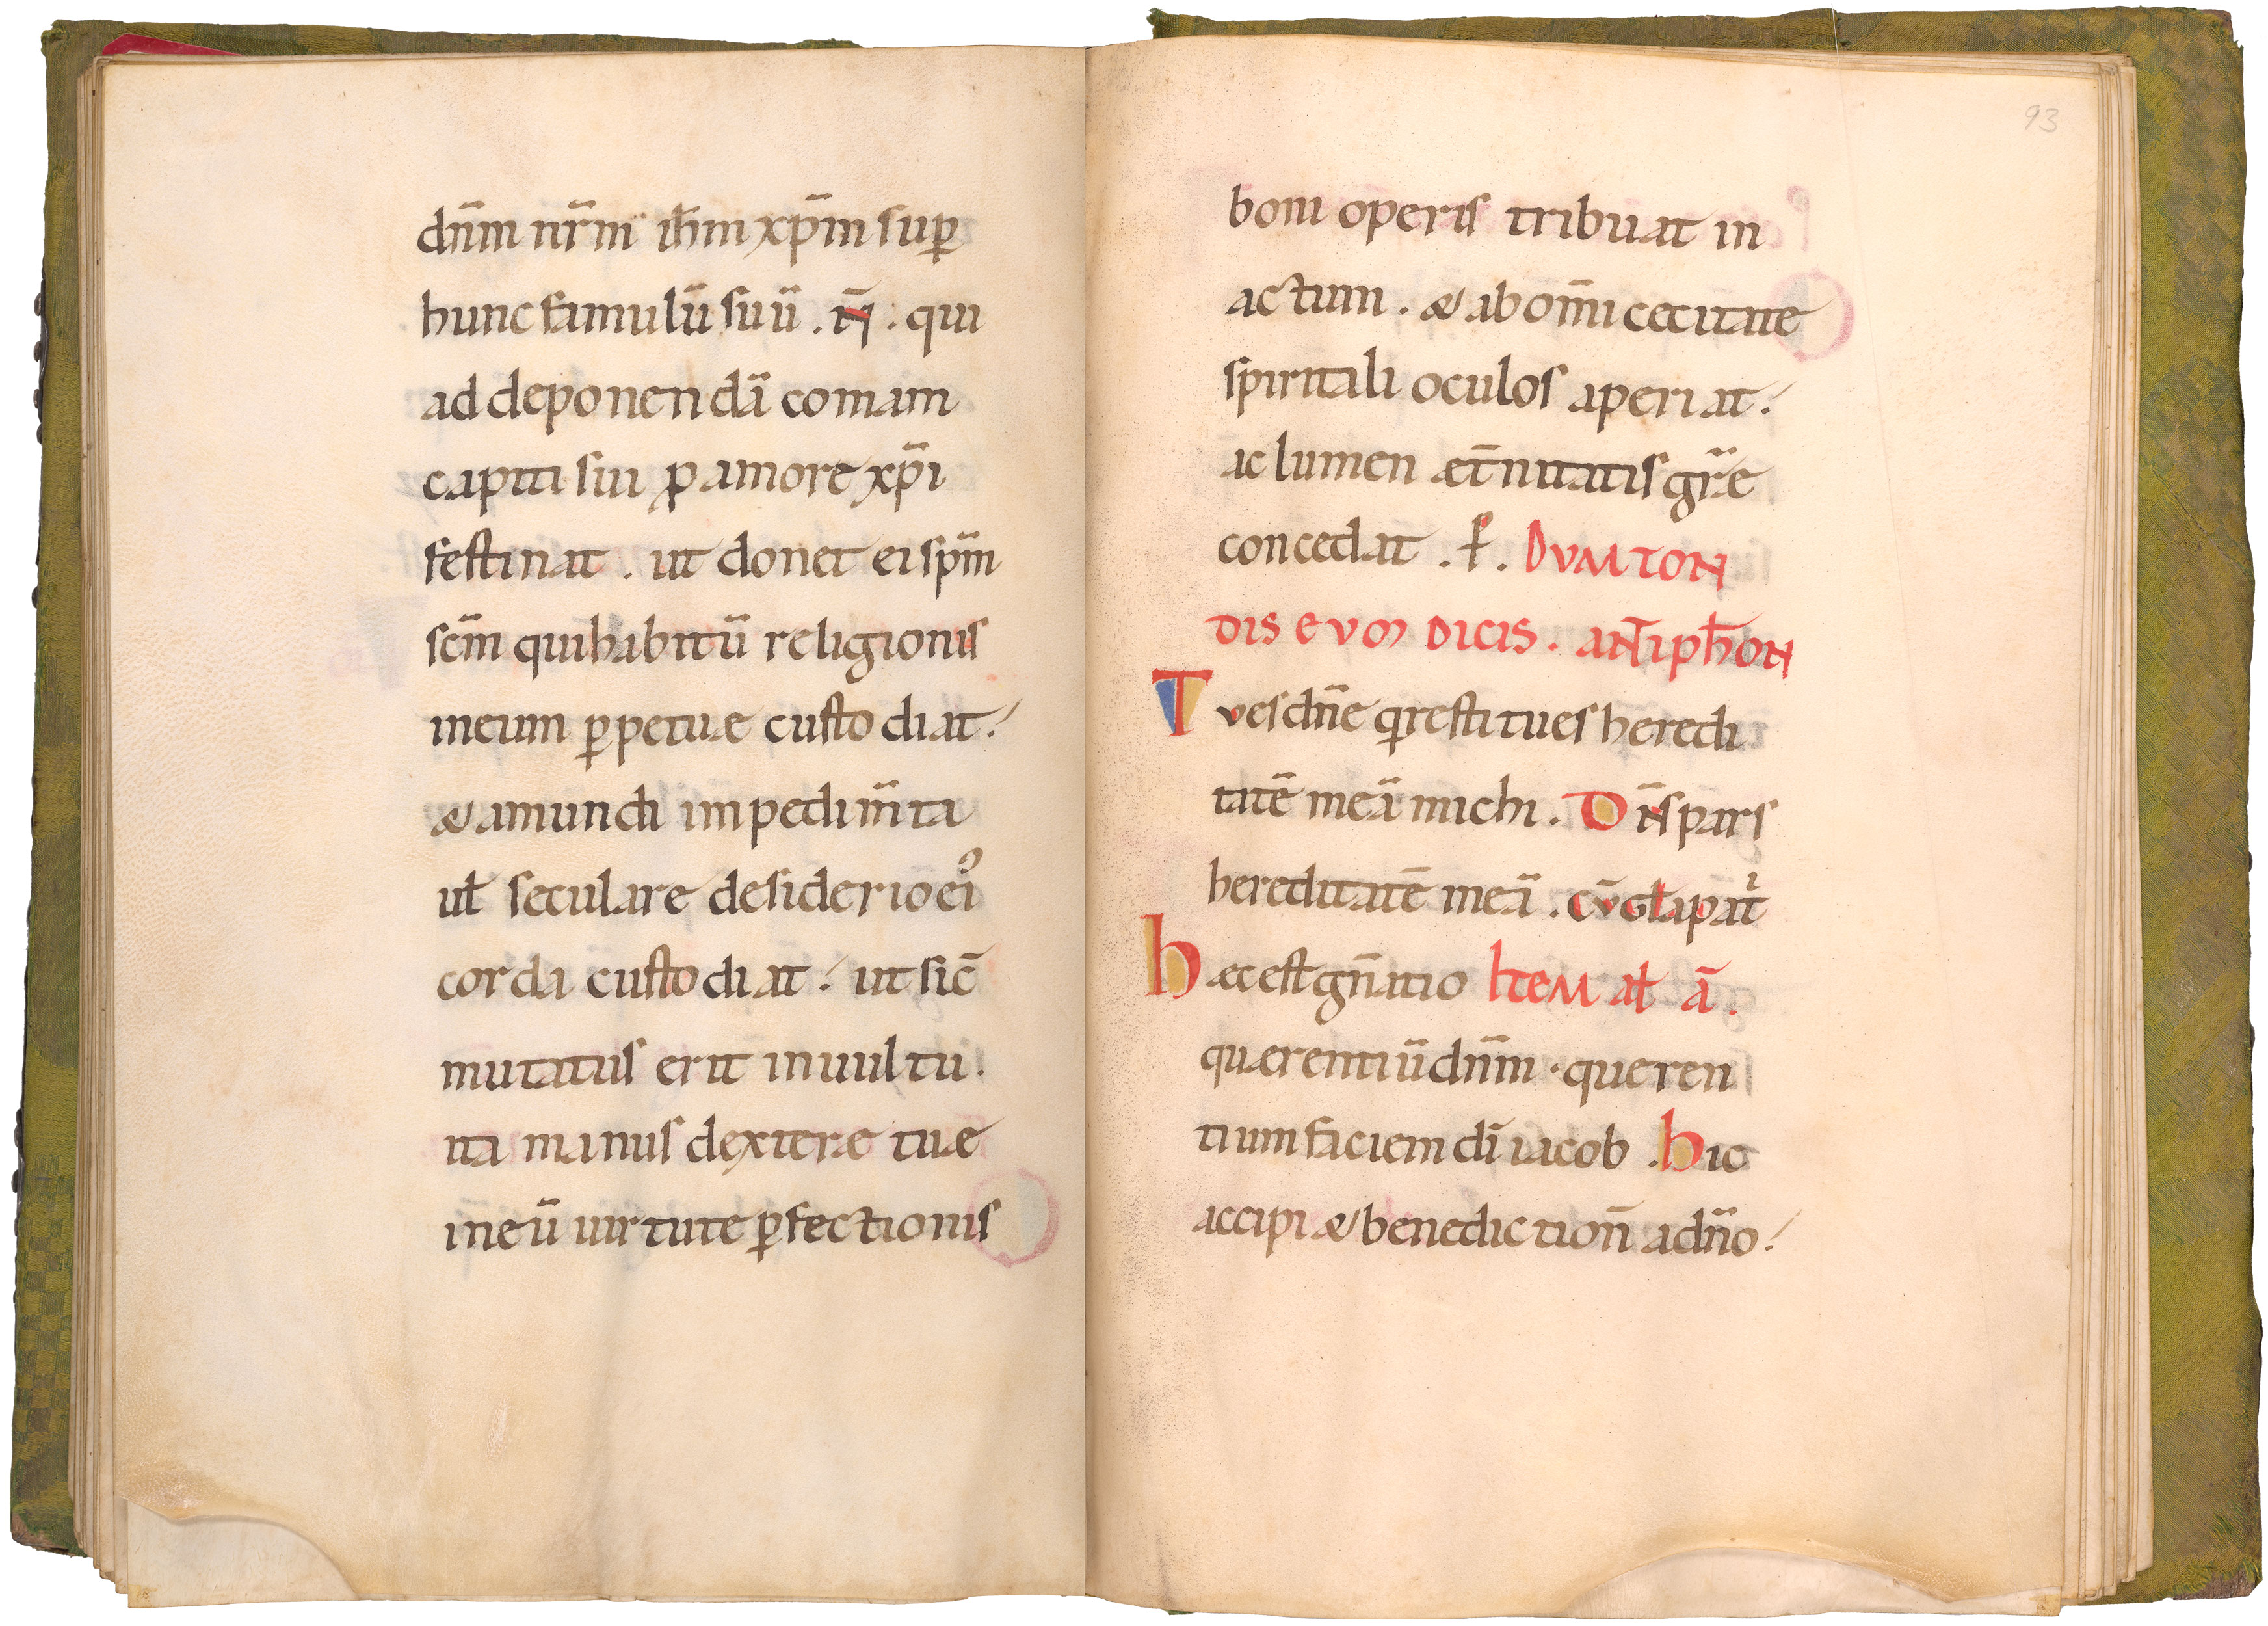 dn̄m nr̄m ih̄m xp̄m sup̱
hunc famulū suū . n̄ . qui
ad deponendā comam
capiti sui ꝓ amore xp̄i
festinat . ut donet ei sp̄m
scm̄ qui habitū religionis
in eum ꝑpetuæ custodiat .
& a mundi impedim̄ta
uł seculare desiderio eiꝰ
corda custodiat . ut sic̄
mutatus erit in uultu .
ita manus dexteræ tuæ
in eū uirtute ꝑfectionis
93
boni operis tribuat in
actum . & ab om̄i cecitate
spiritali oculos aperiat .
ac lumen æt̄nitatis gr̄æ
concedat . ꝑ . DVM TON
DIS EVM DICIS . ANTIPH̄ON
Tv es dn̄e q̇ restitues heredi
tatē meā michi . Dn̄s pars
hereditatē meā . cv̄ gła patͥ
Hæc est gn̄atio ITEM ał ā .
quærentiū dn̄m . queren
tium faciem dī iacob . Hic
accipi& benediction̄ a dn̄o .